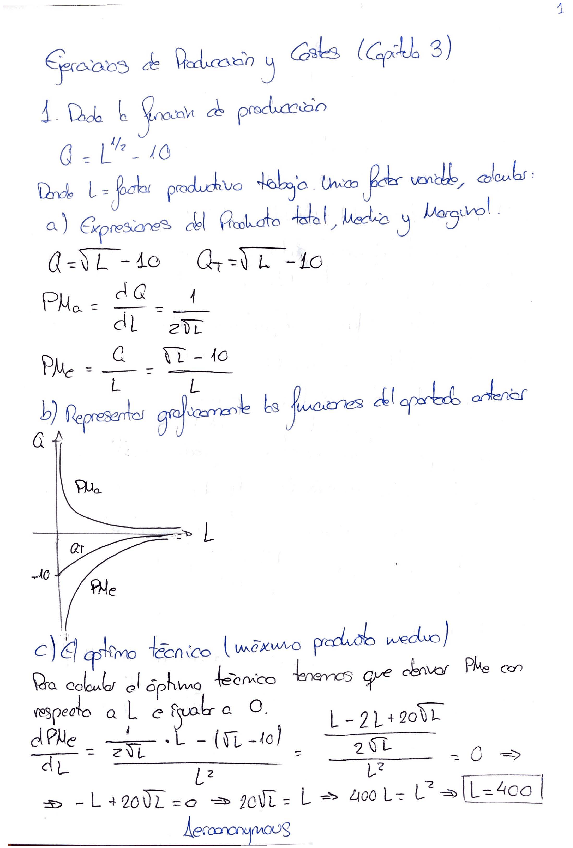 1
Ejercicios de Producción y Costes (Capítulo 3)
1. Dada la función de producción
Q = L^1/2 - 10
Donde L = factor productivo trabajo. Único factor variable, calcular:
a) Expresiones del Producto total, Medio y Marginal.
Q = √L - 10   QT = √L - 10
PMa = dQ/dL = 1/2√L
PMe = Q/L = √L - 10/L
b) Representar gráficamente las funciones del apartado anterior
Q
PMa
L
QT
-10
PMe
c) El óptimo técnico (máximo producto medio)
Para calcular el óptimo técnico tenemos que derivar PMe con
respecto a L e igualar a 0.
dPMe/dL = (1/2√L · L - (√L - 10))/L² = ((L - 2L + 20√L)/2√L)/L² = 0 ⇒
⇒ - L + 20√L = 0 ⇒ 20√L = L ⇒ 400L = L² ⇒ L = 400
Aeroanonymous